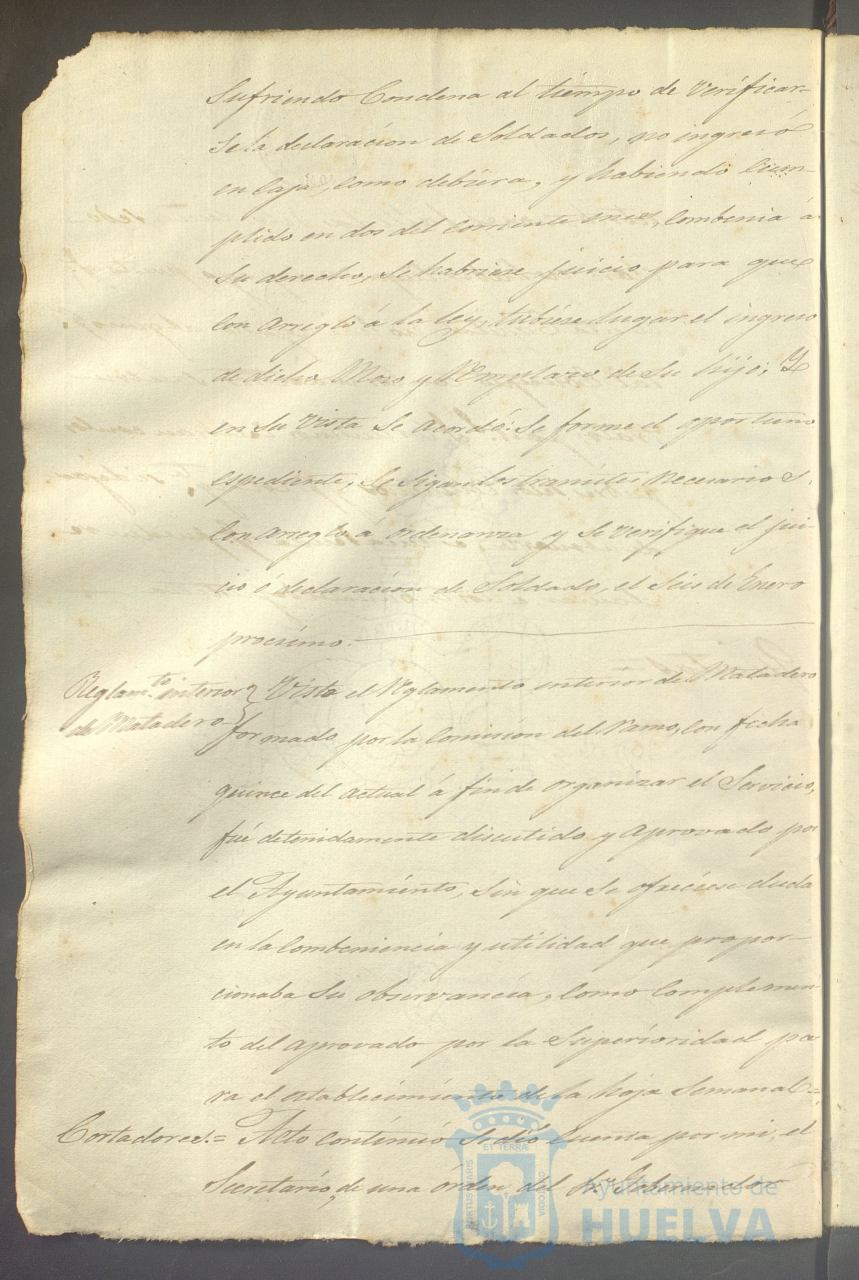 Sufriendo Condena al tiempo de Verificar-
se la declaración de Soldados, no ingresó
en Caja, como debiera, y habiendo Cum-
plido en dos del Corriente mes, Combenia á
su derecho, se habriese juicio para que
Con Arreglo á la ley, tubiese lugar el ingreso
de dicho Mozo y Remplazo de Su hijo; Y
en Su Vista Se Acordó: Se forme el oportuno
espediente, Se Sigan los tramites Necesarios,
Con Arreglo a ordenanza y Se Verifique el jui-
cio ó declaración de Soldado, el Seis de Enero
procsimo.
Reglam.to interior
de Matadero
Visto el Reglamento interior de Matadero
formado por la Comision del Ramo, con fecha
quince del actual á fin de organizar el Servicio,
fué detenidamente discutido y Aprovado por
el Ayuntamiento, Sin que Se ofreciese duda
en la Combeniencia y utilidad que propor-
cionaba Su observancia, Como Complemen-
to del Aprovado por la Superioridad pa-
ra el establecimiento de la hoja Semanal=
Cortadores.= Acto continuó Se dió Cuenta por mi, el
Secretario, de una órden del Sr. Gobernador
ET TERRÆ
PORTUS MARIS
CUSTODIA
Ayuntamiento de
HUELVA